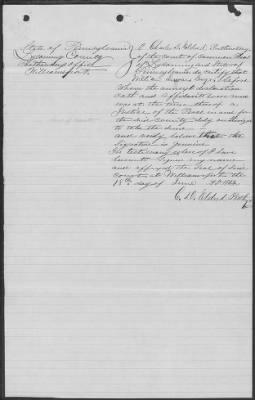 State of Pennsylvania
Lycoming County
Prothonotary's office
Williamsport
I Charles D. Eldred Prothonotary
of the court of common Pleas
of Lycoming and State of
Pennsylvania do certify that
Esqr. before
whom the annexed declaration
oath and affidavits were made
was at the time thereof a
Justice of the Peace in and for
the said county duly authorized
to take the same
and verily believe that the
signature is genuine
In testimony whereof I have
hereunto signed my name
and affixed the Seal of said
court at Williamsport the
18th day of June AD 186
C. D. Eldred Prothy